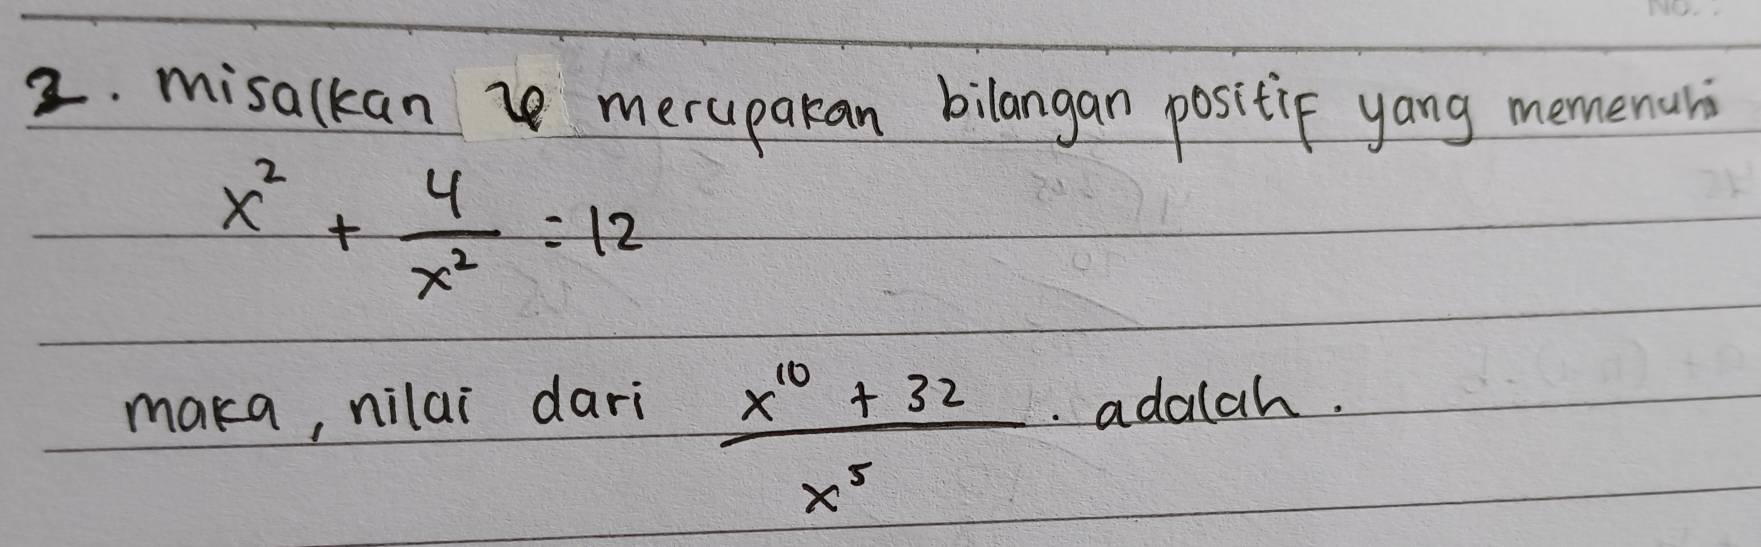 No.:
2. misalkan x merupakan bilangan positif yang memenuhi
x² + 4/x² = 12
maka, nilai dari (x¹⁰ + 32)/x⁵ . adalah.